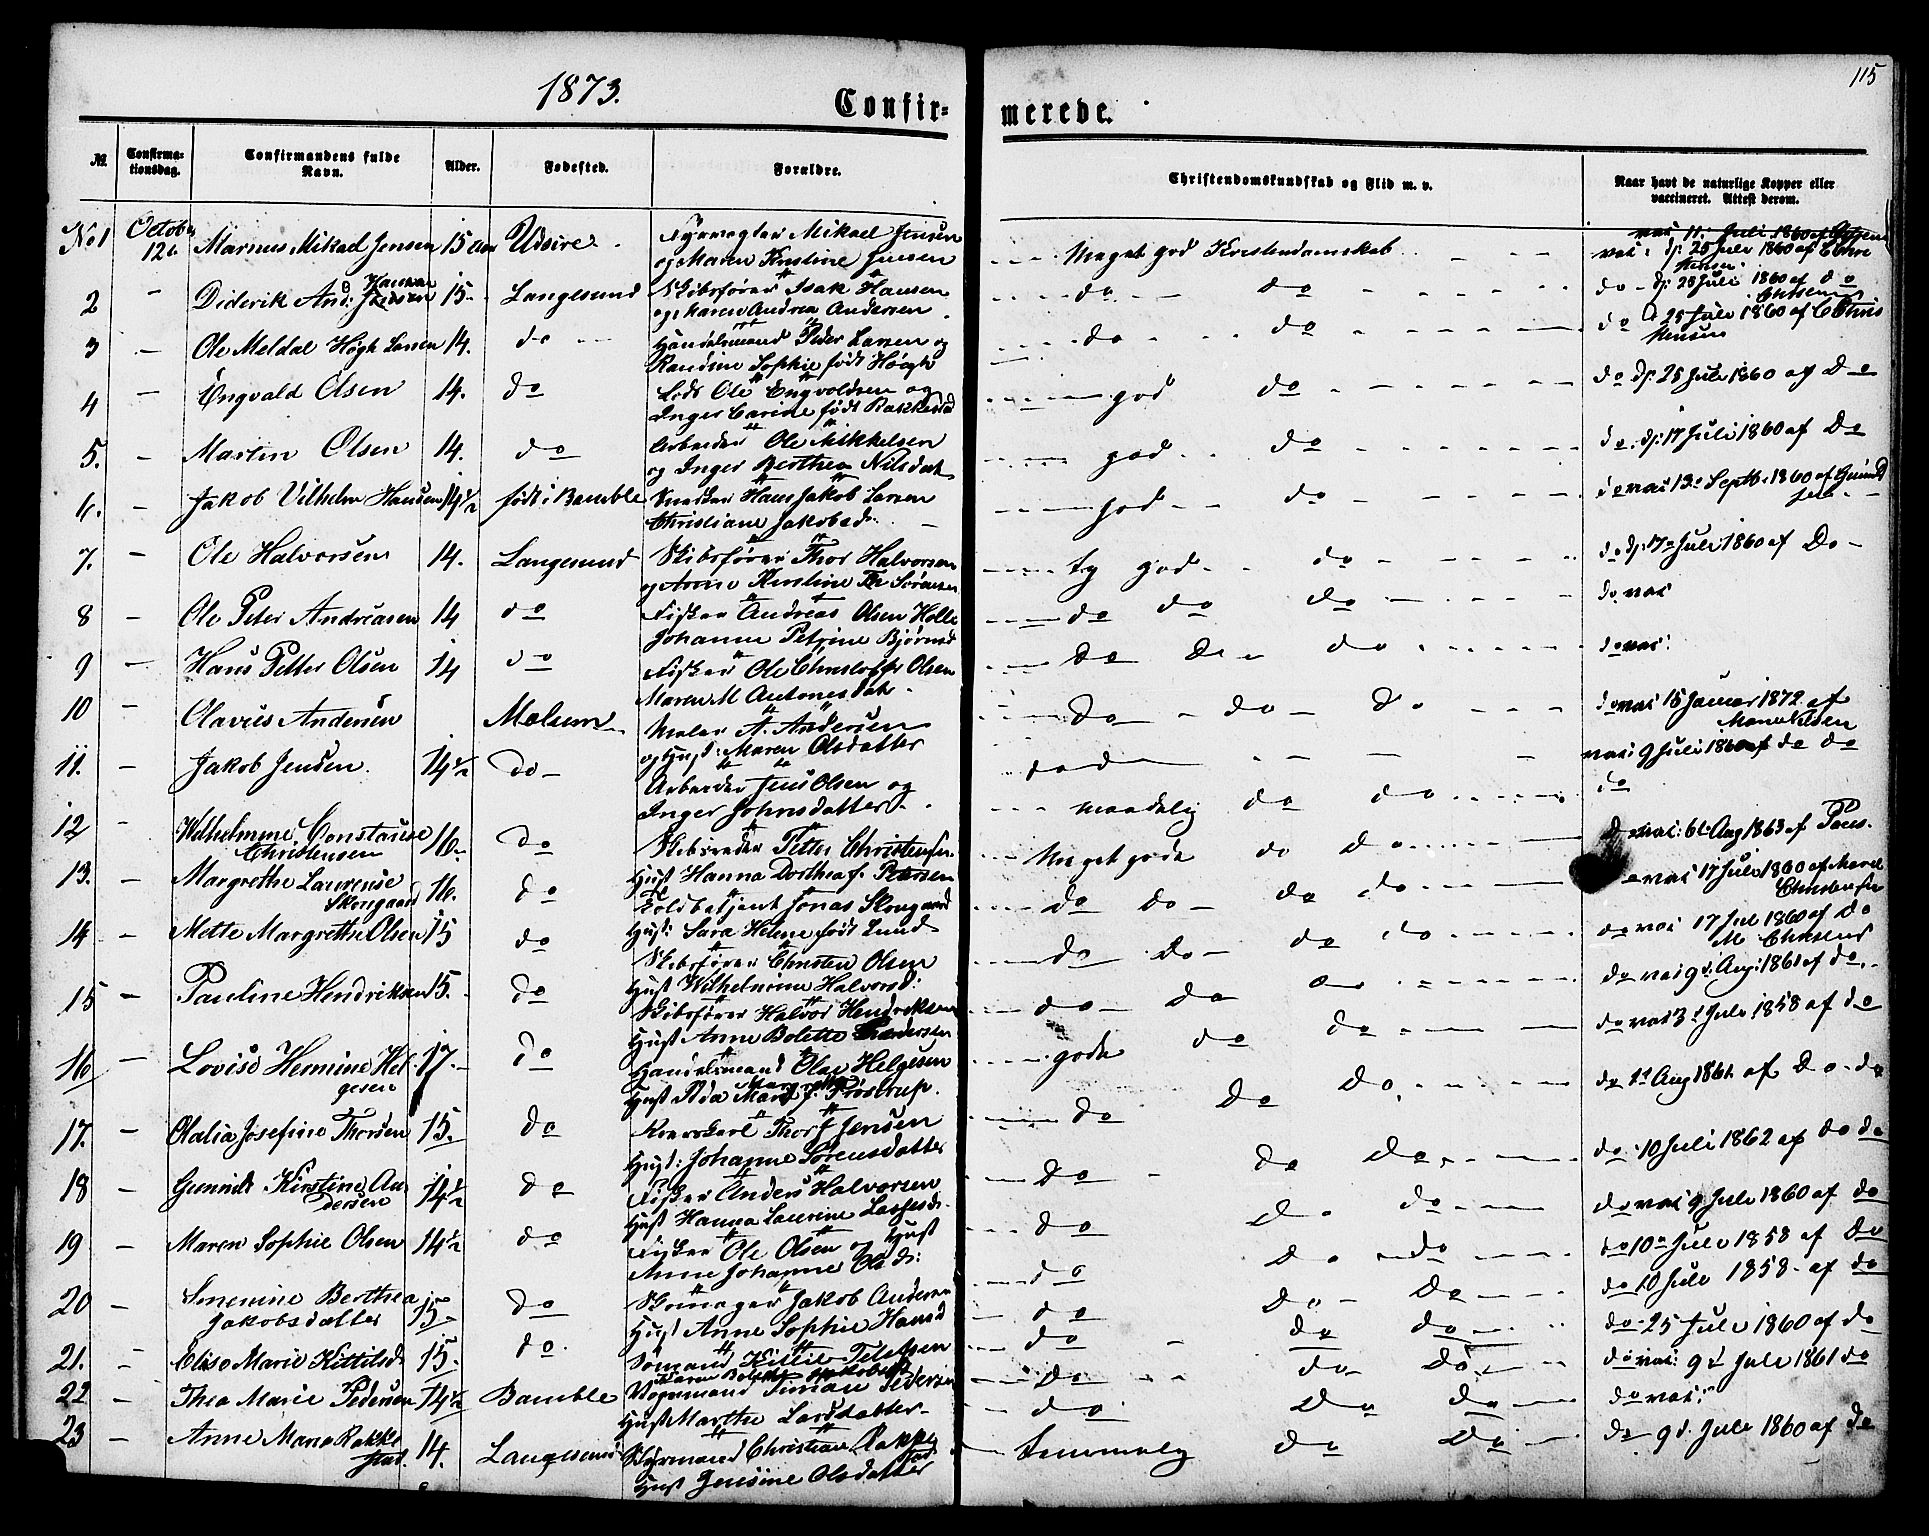 1873.
115
Confir-
merede.
№
Confirma-
tionsdag.
Confirmandens fulde
Navn.
Alder.
Fødested.
Forældre.
Christendomskundskab og Flid m. v.
Naar havt de naturlige Kopper eller
vaccineret. Attest derom.
No 1 Octobr 12te Marnus Mikael Jensen 15 Udsire Fyrvogter Mikael Jensen
og Maren Kirstine Jensen
Meget god Kristendomskab
vac: 11. Juli 1860 af
vac: dp: 25 Juli 1860 af Chri
stensen
2 - Diderik And: Hansen 15 Langesund Skibsfører Isak Hansen
og Maren Andrea Andersen
do do
do - dp: 28 Juli 1860 af do
3 - Ole Meldal Høgh Larsen 14. do Handelsmand Peder Larsen og
Randine Sophie født Høegh
do do
do 25 Juli 1860 af Chris
tensen
4 - Engvald Olsen 14. do Lods Ole Engvoldsen og
Inger Carine født Rakkestad
god do
do dp: 25 Juli 1860 af Do
5. - Martin Olsen 14. do Arbeider Ole Mikkelsen
og Inger Berthea Nilsdat
god do
do. dp: 17 Juli 1860 af Do
6. - Jakob Vilhelm Hansen 14½ født i Bamble Snedker Hans Jakob Larsen
Christiane Jakobsd:
god do
do vac: 13de Septb. 1860 af
7. - Ole Halvorsen 14. Langesund Skibsfører Thor Halvorsen
og Anne Kirstine Sørensen
tg god do
do dp: 17 Juli 1860 af Do
8 - Ole Peter Andreasen 14 do Fisker Andreas Olsen Holle
Johanne Petrine Bjørnsd
do do do
do vac
9 - Hans Petter Olsen 14 do Fisker Ole Christoffer Olsen
Maren M Antonesdat.
do do do
do vac:
10 - Olavus Andersen Melsum Maler A. Andersen
og Hust: Maren Olsdatter
do - do - do
do vac 15 Januar 1872 af
11. - Jakob Jensen 14½ do - Arbeider Jens Olsen og
Inger Johnsdatter
maadelig do do
vac: 9 Juli 1860 af do do
do
12 - Wilhelmine Constance
Christensen 16 do Skibsreder Petter Christensen
Hust Hanna Dorthea f. Petersen
Meget gode do do
do vac: 6te Aug 1863 af
13. - Margrethe Laurense
Skougaard 16. do Toldbetjent Jonas Skougaard
Hust: Sara Helene født Lund
do do do do
vac 17 Juli 1860 af
Christensen
14 - Mette Margrethe Olsen 15 do Skibsfører Christen Olsen
Hust Wilhelmine Halvorsd:
do do do do
do vac 17 Jul 1860 af do
15 - Pauline Hendriksen 15. do Skibsfører Halvor Hendriksen
Hust Anne Bolette
do do
do vac 9d. Aug: 1861 af do.
16 - Lovise Hermine Hel
gesen 17. do Handelsmand Olav Helgesen
Hust Ida Margrethe f. Prøstrup.
gode do do
do vac 31 Juli 1858 af do
17. - Olalia Josefine Thorsen 15. do Thor J Jensen
Hust: Johanne Sørensdatter
do do do
do 11 Aug 1861 af Do do
18 - Gunnild Kirstine An
dersen 14½ do Fisker Anders Halvorsen
Hust Hanna Laurine Lassesd.
do do do
do 10 Juli 1862 af do do
19 - Maren Sophie Olsen 14½ do Fisker Ole Olsen og Hust
Anne Johanne Olsd:
do do do
do vac 9 Juli 1860 af do
20 - Berthea
Jakobsdatter 15 do Skomager Jakob Andersen
Hust Anne Sophie Hansd
do do do
do 10 Juli 1858 af do
do 10 Juli 1858 af do
21. - Elise Marie Kittilsd. 15. do. Sømand Kittil Tellefsen
Maren Bolette Jakobsdt
do do do
do 25 Juli 1860 af do
22 - Thea Marie Pedersen 14½ Bamble Vognmand Simon Pedersen
Hust Marthe Larsdatter
do do do
do vac: 9d Juli 1861 do
do vac:
23 - Anne Marie Rakke
stad. 14. Langesund Styrmand Christian Rakke
stad
Hust Jensine Olsdatter
temmelig do do
do 9d. Juli 1860 af do